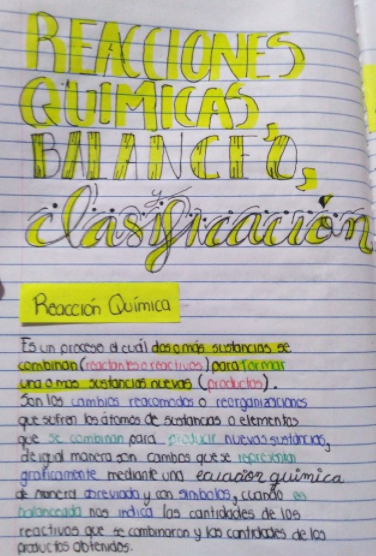 REACCIONES
QUIMICAS,
BALANCEO,
y
clasificación
Reacción Química
Es un proceso el cuál dos o más sustancias se
combinan (reactantes o reactivos) para formar
una o mas sustancias nuevas (productos).
Son los cambios reacomodos o reorganizaciones
que sufren los átomos de sustancias o elementos
que se combinan para producir nuevas sustancias,
de igual manera son cambios que se representan
graficamente mediante una ecuación química
de manera abreviada y con simbolos, cuando es
balanceada nos indica las cantidades de los
reactivos que se combinaron y las cantidades de los
productos obtenidos.